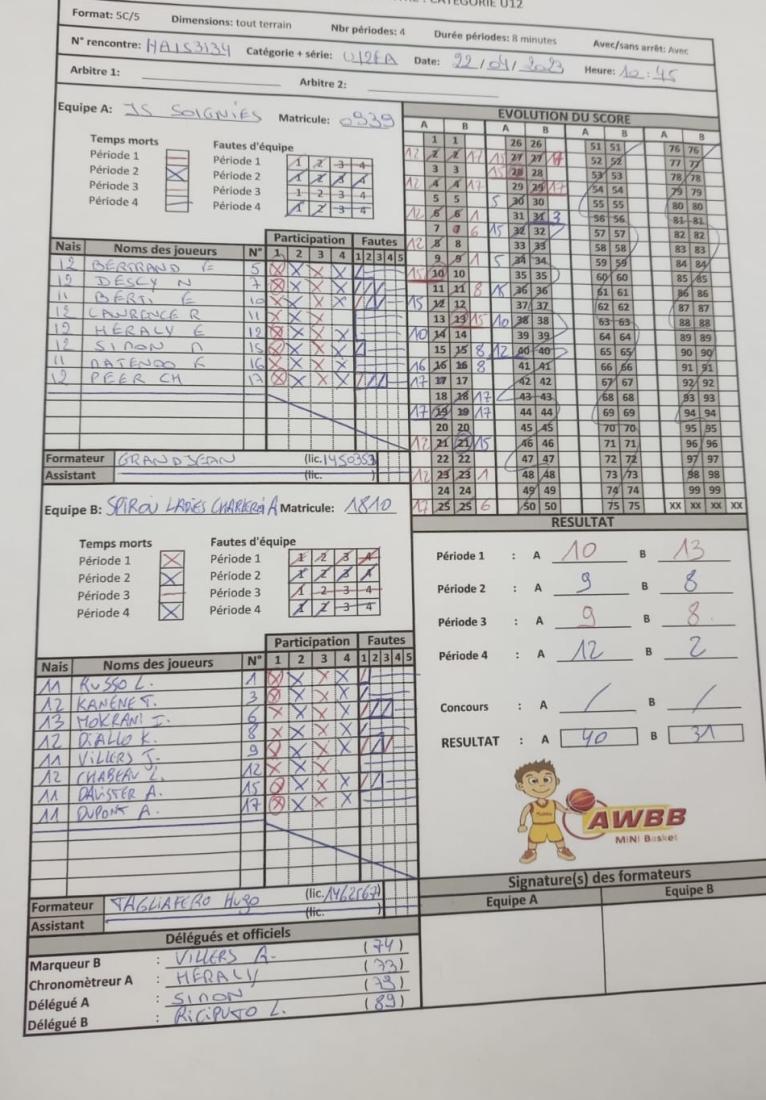 CATEGORIE U12
Format: 5C/5 Dimensions: tout terrain Nbr périodes: 4 Durée périodes: 8 minutes Avec/sans arrêt: Avec
N° rencontre: HA153134 Catégorie + série: U12FA Date: 22/04/2023 Heure: 10:45
Arbitre 1: Arbitre 2:
Equipe A: JS SOIGNIES Matricule: 0939
Temps morts Fautes d'équipe
Période 1 Période 1 1 2 3 4
Période 2 Période 2 1 2 3 4
Période 3 Période 3 1 2 3 4
Période 4 Période 4 1 2 3 4
Participation Fautes
Nais Noms des joueurs N° 1 2 3 4 1 2 3 4 5
12 BERTRAND E 5
12 DESCY N 7
11 BERTI E 10
12 LAWRENCE R 11
12 HÉRALY E 12
12 SIMON M 15
11 MATENDO K 16
12 PEER CH 17
Formateur GRANDJEAN (lic. 1450353)
Assistant (lic. )
Equipe B: SPIROU LADIES CHARLEROI A Matricule: 1810
Temps morts Fautes d'équipe
Période 1 Période 1 1 2 3 4
Période 2 Période 2 1 2 3 4
Période 3 Période 3 1 2 3 4
Période 4 Période 4 1 2 3 4
Participation Fautes
Nais Noms des joueurs N° 1 2 3 4 1 2 3 4 5
11 RUSSO L. 1
12 KANENE T. 3
13 MOKRANI I. 6
12 DIALLO K. 8
11 VILLERS J. 9
12 CHABEAU L. 12
11 DAUSTER A. 15
11 DUPONT A. 17
Formateur TAGLIAFERO Hugo (lic. 1462567)
Assistant (lic. )
Délégués et officiels
Marqueur B : VILLERS A. (74)
Chronomètreur A : HERALY (73)
Délégué A : SIMON (79)
Délégué B : RICIPUTO L. (89)
EVOLUTION DU SCORE
A B A B A B A B
1 1 26 26 51 51 76 76
12 2 2 17 15 27 27 17 52 52 77 77
3 3 15 28 28 53 53 78 78
12 4 4 17 29 29 17 54 54 79 79
5 5 5 30 30 55 55 80 80
12 6 6 1 31 31 3 56 56 81 81
7 7 6 15 32 32 57 57 82 82
12 8 8 33 33 58 58 83 83
9 9 1 5 34 34 59 59 84 84
15 10 10 35 35 60 60 85 85
11 11 8 15 36 36 61 61 86 86
15 12 12 37 37 62 62 87 87
13 13 15 10 38 38 63 63 88 88
10 14 14 39 39 64 64 89 89
15 15 8 12 40 40 65 65 90 90
16 16 16 8 41 41 66 66 91 91
17 17 17 42 42 67 67 92 92
18 18 17 43 43 68 68 93 93
17 19 19 17 44 44 69 69 94 94
20 20 45 45 70 70 95 95
12 21 21 15 46 46 71 71 96 96
22 22 47 47 72 72 97 97
12 23 23 1 48 48 73 73 98 98
24 24 49 49 74 74 99 99
17 25 25 6 50 50 75 75 XX XX XX XX
RESULTAT
Période 1 : A 10 B 13
Période 2 : A 9 B 8
Période 3 : A 9 B 8
Période 4 : A 12 B 2
Concours : A / B /
RESULTAT : A 40 B 31
AWBB
MiNi Basket
Signature(s) des formateurs
Equipe A Equipe B